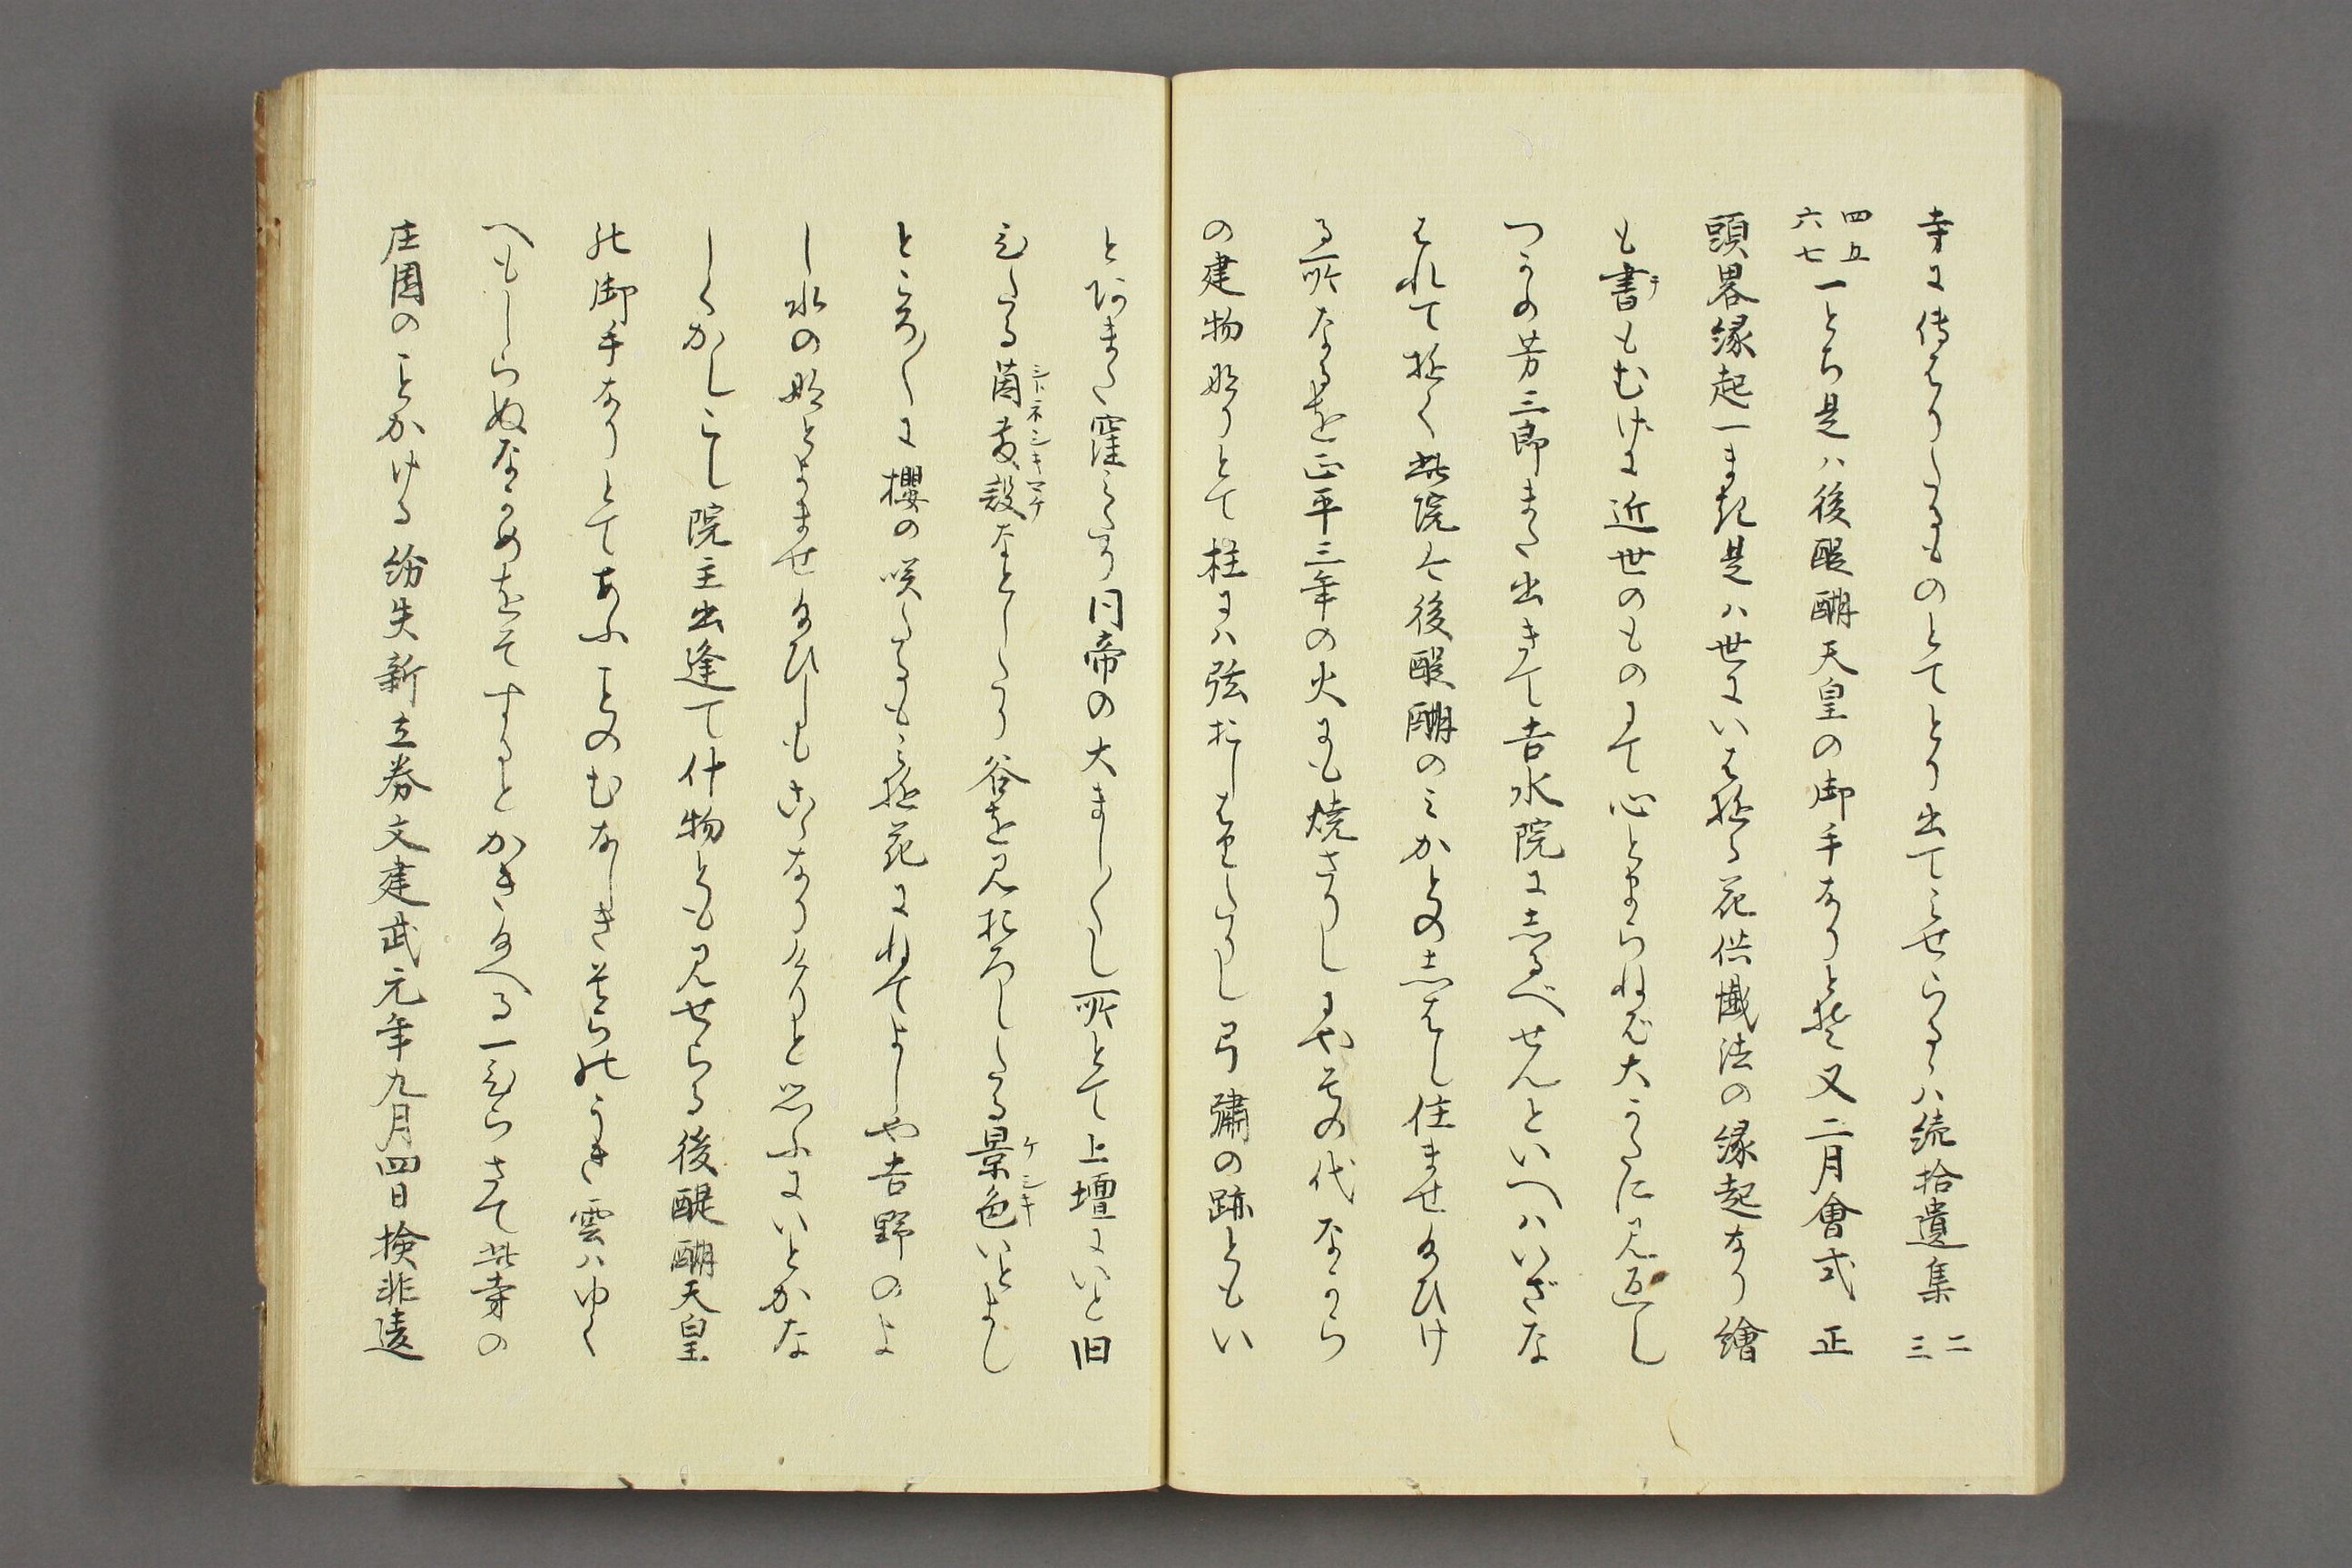 寺に傳はりたるものとてとり出てみせらるゝハ続拾遺集 二三
四五六七一とち是ハ後醍醐天皇の御手なりとそ又二月會式 正
頭畧縁起一まき是ハ世にいはゆる花供懺法の縁起なり繪
も書もむけに近世のものにて心とまらねど大かたに見返し
つゝかの芳三郎また出きて吉水院にしるべせんといへハいざな
はれて遊く此院ハ後醍醐のみかとのしはし住ませ給ひけ
る所なるを正平三年の火にも焼さりしにやその代なから
の建物也りとて柱にハ弦おしはりたりし弓彇の跡ともい
とあまた窪みたり同帝の大まし／＼し所とて上壇にいと旧
ひたる茵敷設なとしたり谷を見おろしたる景色いとよし
ところ／＼に櫻の咲たるもみゆ花にねてよしや吉野のよ
し水の也とよませ給ひしもこゝなりけりと思ふにいとかな
しくかしこし院主出逢て什物とも見せらる後醍醐天皇
の御手なりとてあふことのむなしきそらのうき雲ハゆく
へもしらぬなかめをそするとかき給へる一ひらさて此寺の
庄園のことかける紛失新立券文建武元年九月四日検非違